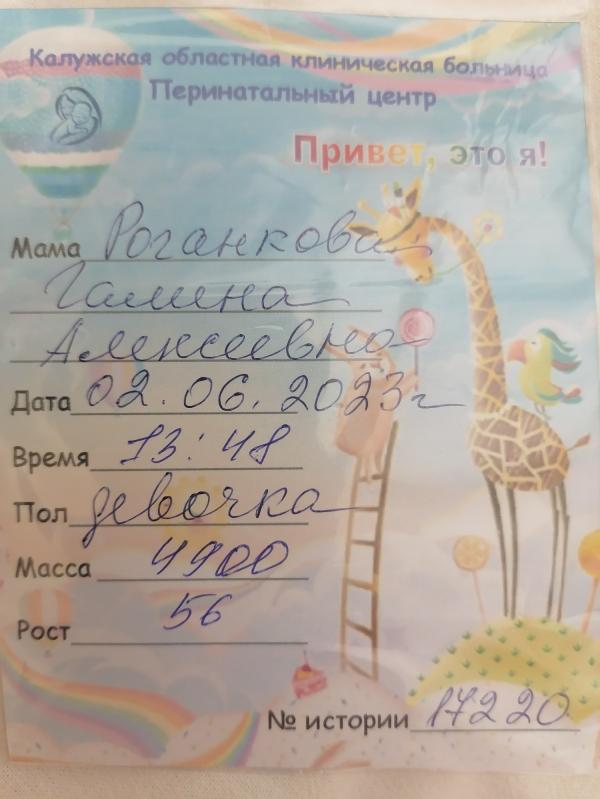 Калужская областная клиническая больница
Перинатальный центр
Привет, это я!
Мама Роганкова
Галина
Алексеевна
Дата 02.06.2023г
Время 13:48
Пол девочка
Масса 4900
Рост 56
№ истории 17220